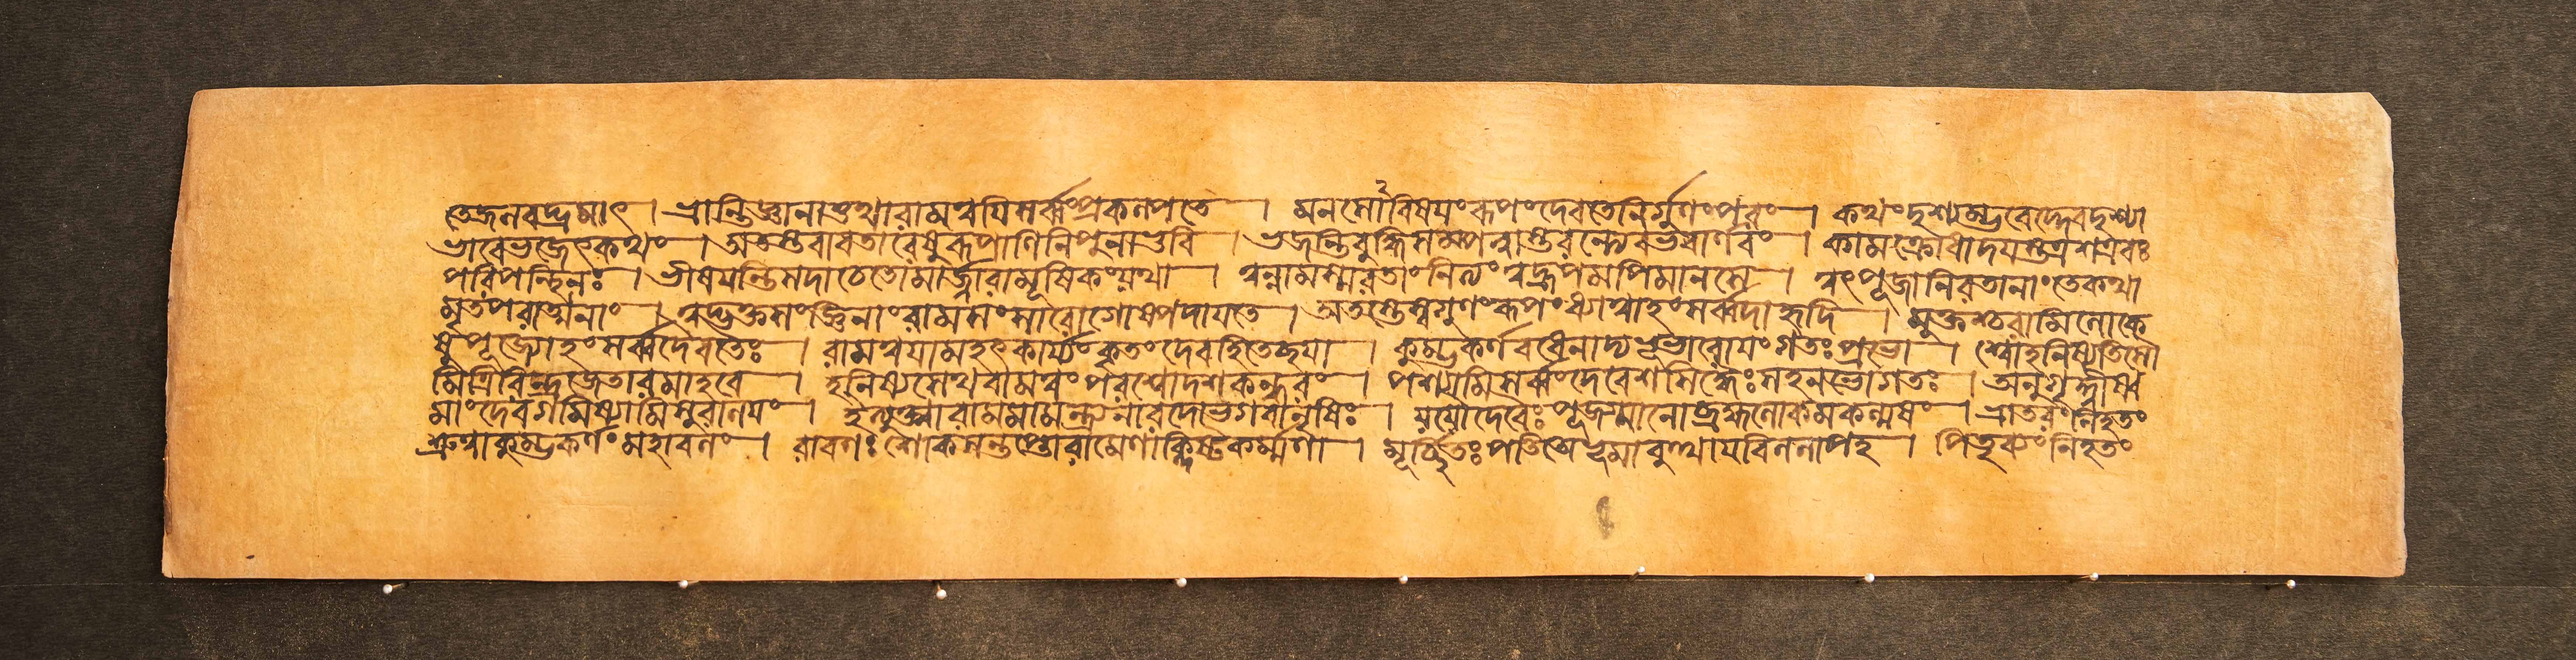 তেজনবদ্ভ্রমাৎ । ভ্রান্তিজ্ঞানাত্তথারামত্বযিসর্ব্বংপ্রকলপ্যতে । মনসো২বিষযংরূপংদেবতেনির্গুণংপরং । কথংদৃশ্যম্ভবেদ্দেবদৃশ্যা
ভাবেভজেৎকথং । অতস্তবাবতারেষুরূপাণিনিপুনাভুবি । ভজন্তিবুদ্ধিসম্পন্নাস্তরন্ত্যেবভবার্ণবং । কামক্রোধাদযস্তত্রশত্রবঃ
পরিপন্থিনঃ । ভীষযন্তিসদাচেতোমার্জ্জারামূষিকংযথা । ত্বন্নামস্মরতাংনিত্যংত্বদ্রূপমপিমানসে । ত্বৎপূজানিরতানাংতেকথা
মৃতপরাত্মনাং । ত্বদ্ভক্তসংঙ্গিনাংরামসংসারোগোষ্পদাযতে । অতস্তেসগুণংরূপংধ্যাত্বাহংসর্ব্বদাহৃদি । মুক্তশ্চরামিলোকে
ষুপূজ্যোহংসর্ব্বদৈবতৈঃ । রামত্বযামহৎকার্য্যংকৃতংদেবহিতেচ্ছযা । কুম্ভকর্ণবধেনাদ্যভূভারোযংগতঃপ্রভো । শ্বোহনিষ্যতিসৌ
মিত্রিরিন্দ্রজেতারমাহবে । হনিষ্যসেথরামত্বংপরশ্বোদশকন্ধরং । পশ্যামিসর্ব্বংদেবেশসিদ্ধৈঃসহনভোগতঃ । অনুগৃহ্ণীষ্ব
মাংদেবগমিষ্যামিসুরালযং । ইত্যুক্ত্বারামমামন্ত্র্যনারদোভগবানৃষিঃ । যযৌদেবৈঃপূজ্যমানোব্রহ্মলোকমকল্মষং । ভ্রাতরংনিহতং
শ্রুত্বাকুম্ভকর্ণংমহাবলং । রাবণঃশোকসন্তপ্তোরামেণাক্লিষ্টকর্ম্মণা । মূর্চ্ছিতঃপতিতোভূমাবুত্থাযবিললাপহ । পিতৃব্যংনিহতং